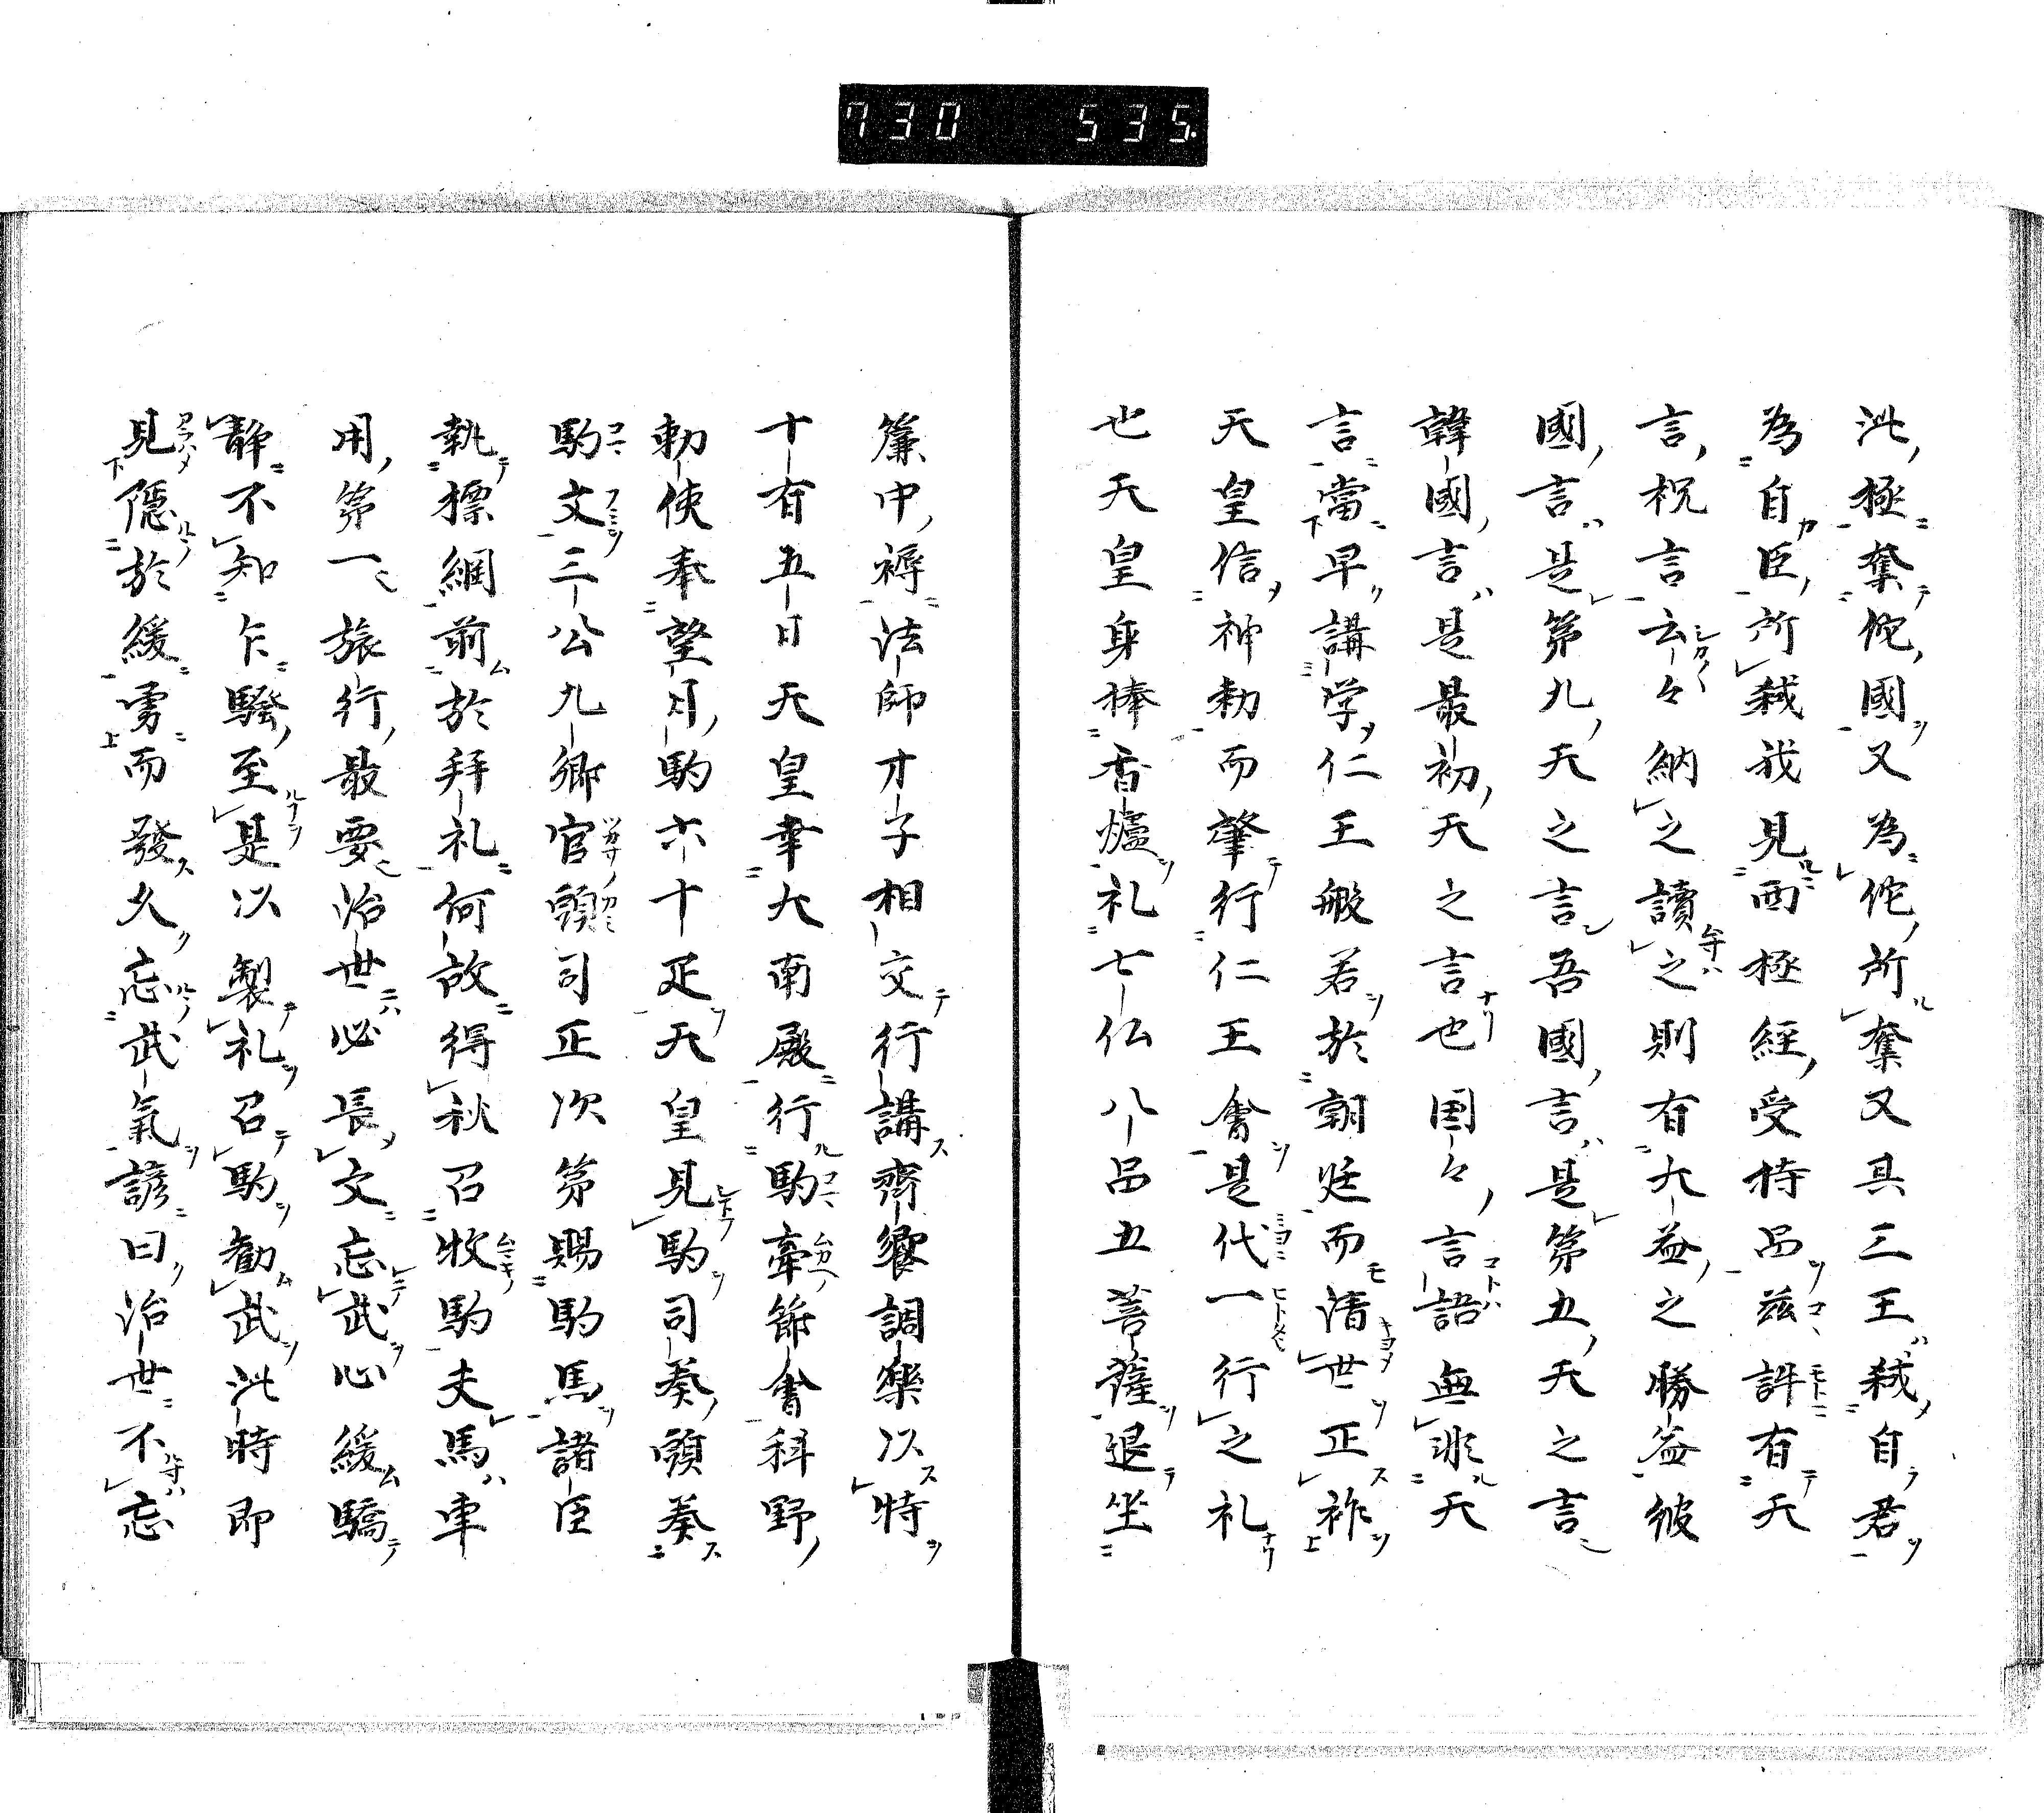 730 535
此極奪佗國又為佗所奪又其三王弒自君
為自臣所弒我見西極經受持品茲評有天
言祝言云々納之讀之則有大益之勝益彼
國言是第九天之言吾國言是第五天之言
韓國言是最初天之言也国々言語無非天
言當早講学仁王般若於朝廷而清世正祚
天皇信神勅而肇行仁王會是代一行之礼
也天皇身捧香爐礼七仏八品五菩薩退坐
簾中褥法師才子相交行講齋饗調樂以特
十有五日天皇幸大南殿行駒牽節會科野
勅使奉望月駒六十疋天皇見駒司奏頭奏
駒文三公九卿官頭司正次第賜駒馬諸臣
執標綱前於拜礼何故得秋召牧駒夫馬車
用第一旅行最要治世必長文忘武心緩驕
靜不知乍騷至是以製礼召駒勧武此時即
見隱於緩雱而發久忘武氣諺曰治世不忘